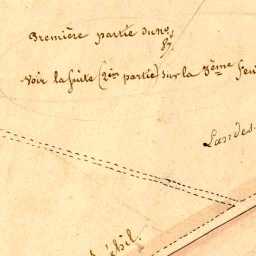 Première partie du no
87
Voir la suite (2me partie) sur la 3ème feu
Landes